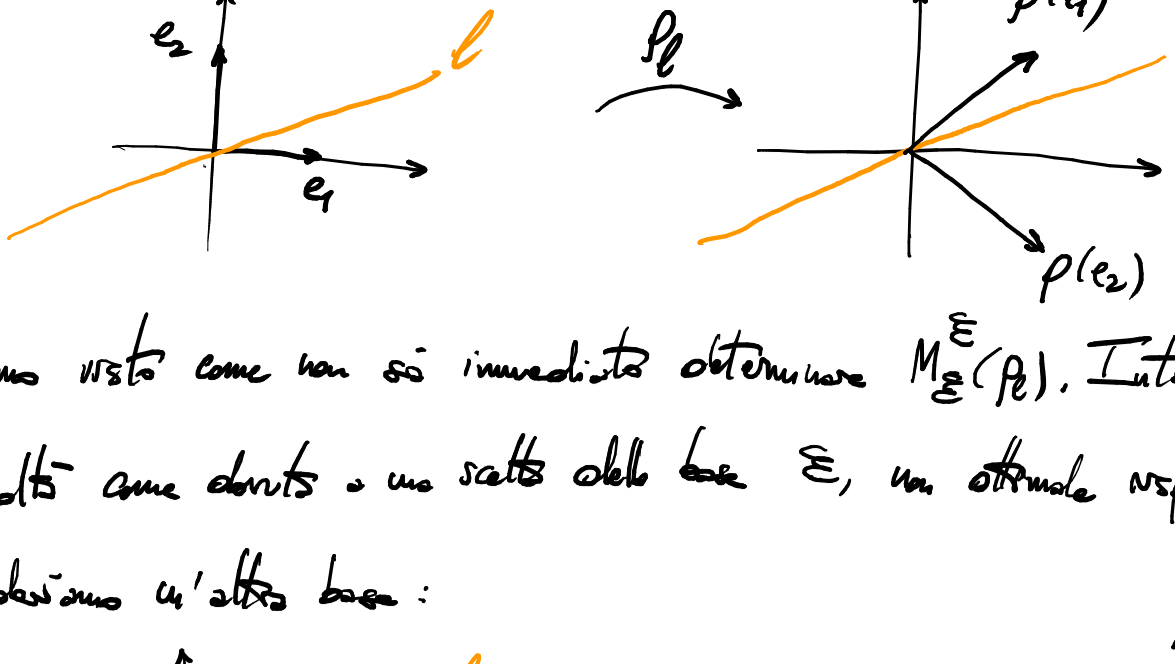 e₂ l ρ_l
e₁ ρ(e₂)
visto come non sia immediato determinare M_ℰ^ℰ(ρ_l).
come dovuta a una scelta della base ℰ, non ottimale
un'altra base:
l